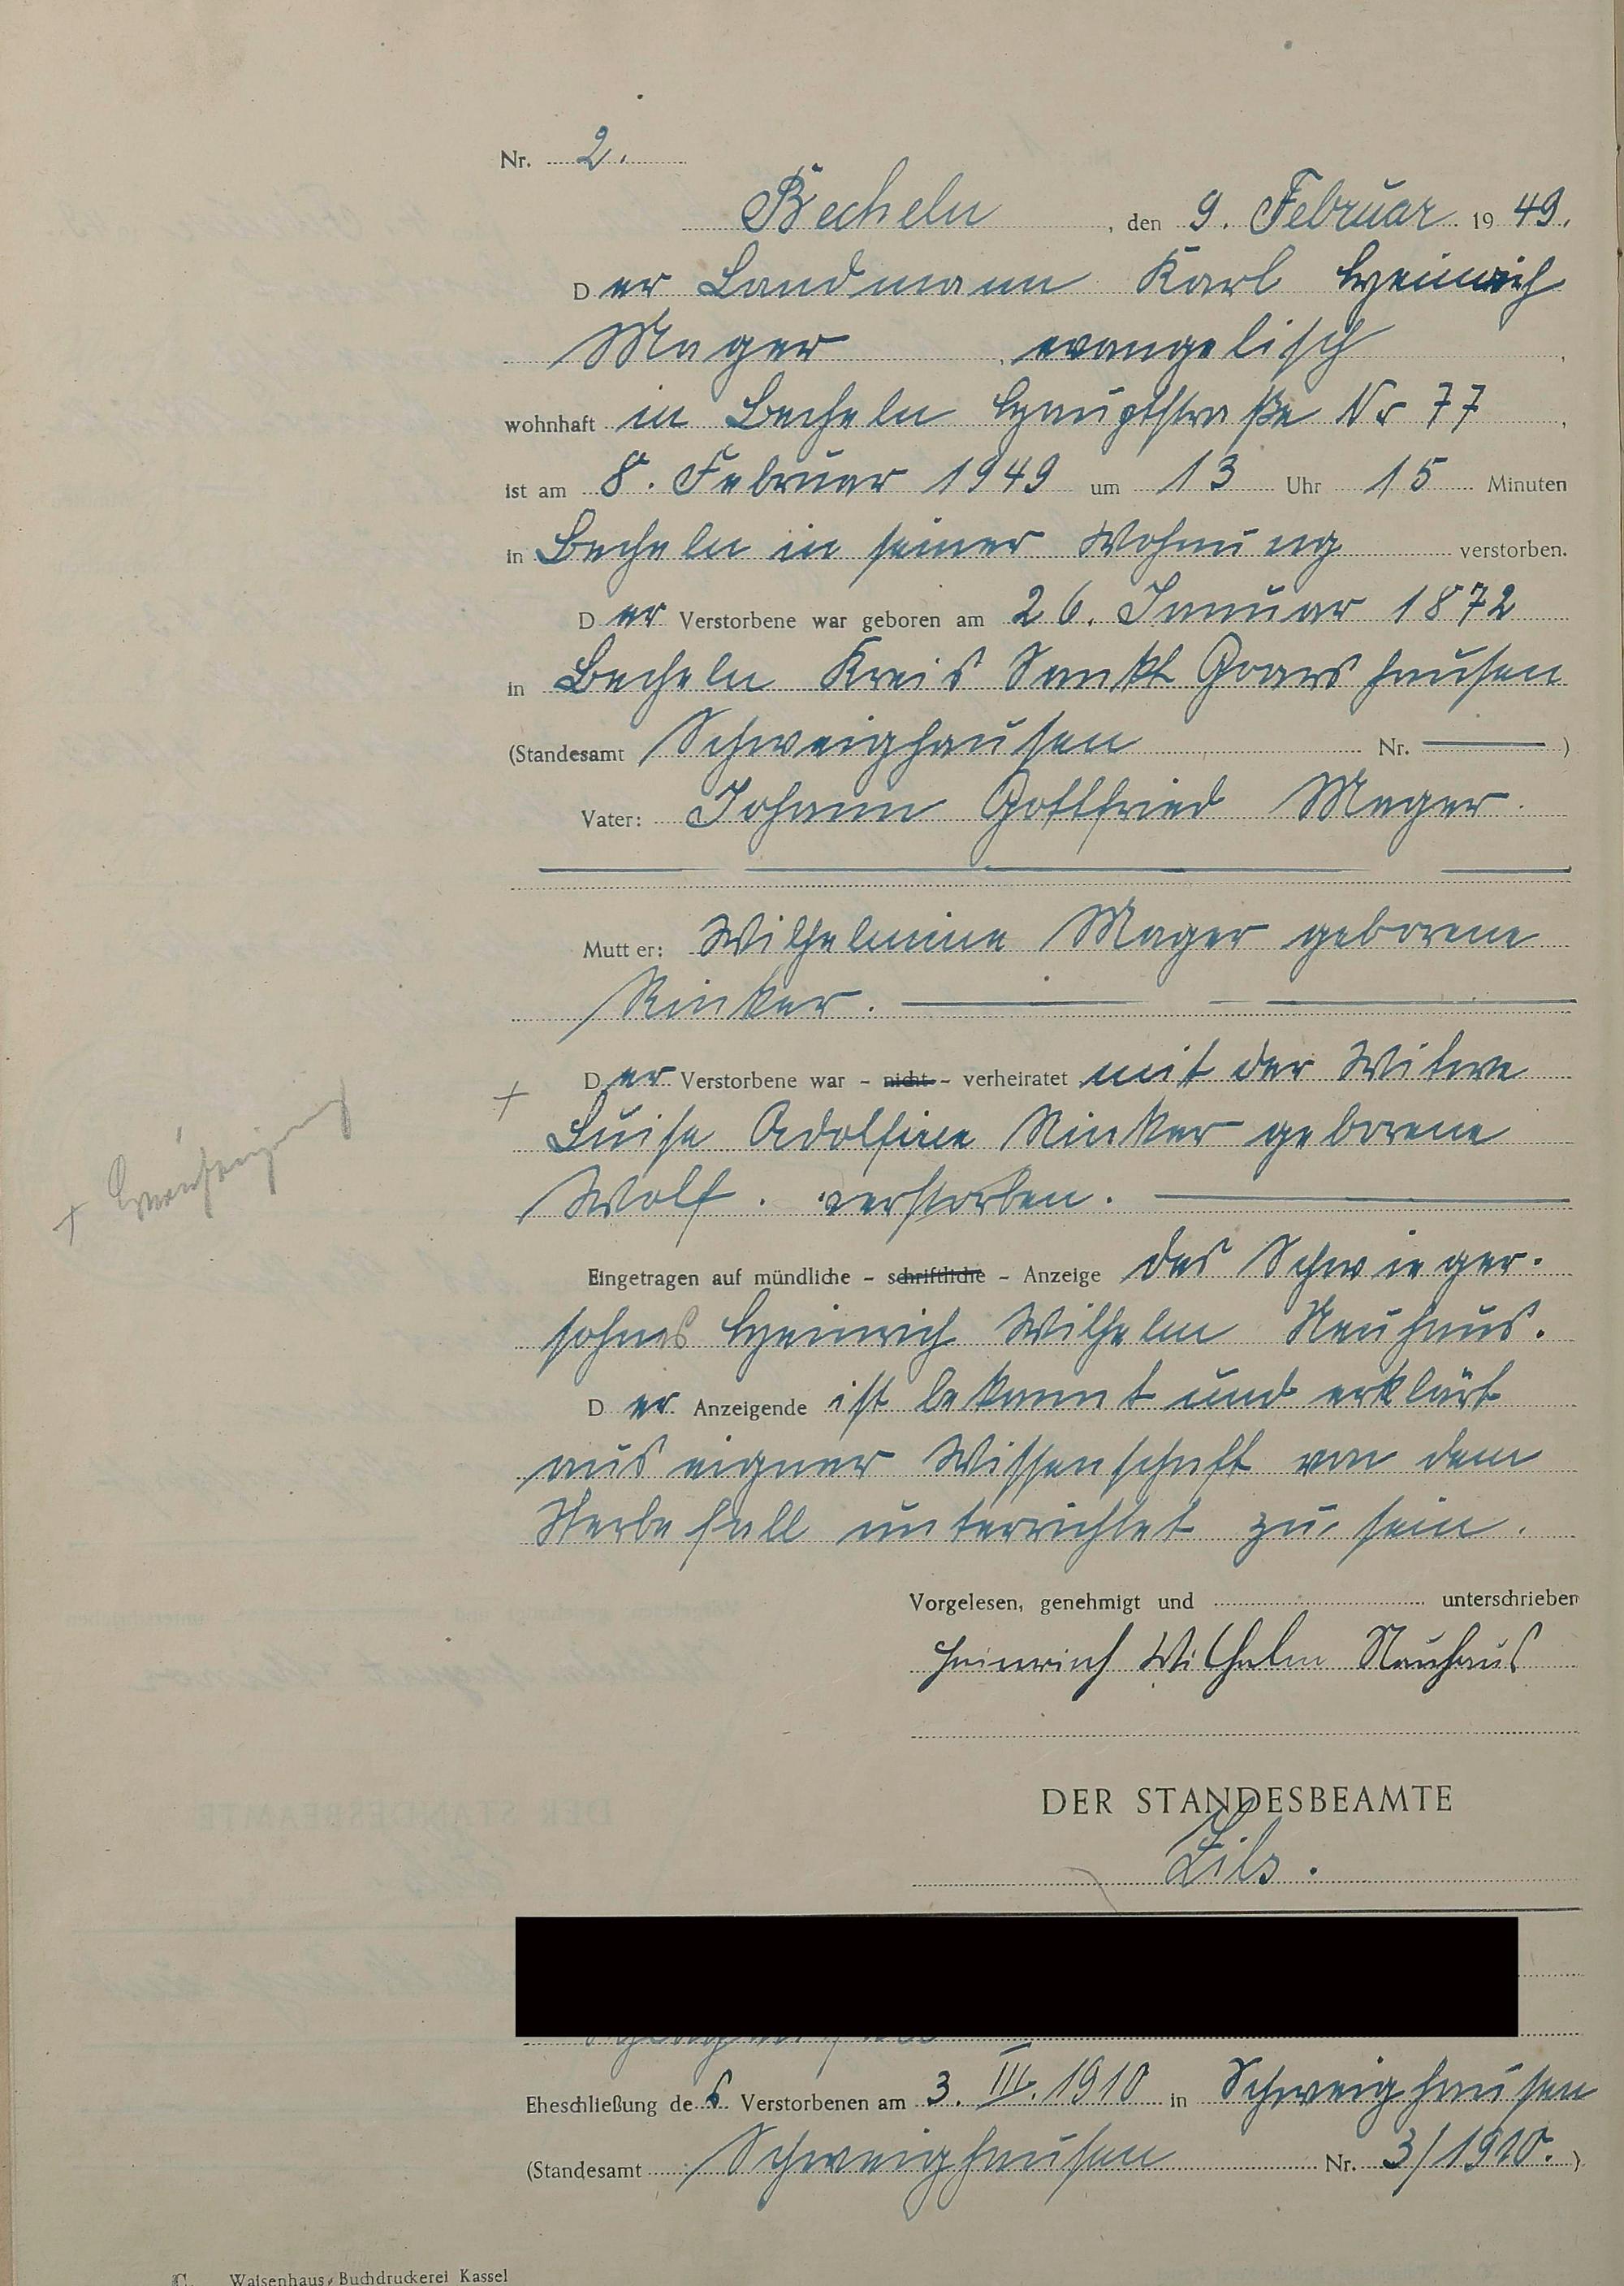 Nr. 2.
Becheln, den 9. Februar 1949.
Der Landmann Karl Heinrich
Mager evangelisch,
wohnhaft in Becheln Hauptstraße Nr 77,
ist am 8. Februar 1949 um 13 Uhr 15 Minuten
in Becheln in seiner Wohnung verstorben.
Der Verstorbene war geboren am 26. Januar 1872
in Becheln Kreis Sankt Goarshausen
(Standesamt Schweighausen Nr. —)
Vater: Johann Gottfried Mager.
Mutter: Wilhelmine Mager geborene
Rinker.
Der Verstorbene war - nicht - verheiratet mit der Witwe
+
Luise Adolfine Rinker geborene
Wolf. verstorben.
+
Eingetragen auf mündliche - schriftliche - Anzeige des Schwieger-
sohnes Heinrich Wilhelm Neuhaus.
Der Anzeigende ist bekannt und erklärt
aus eigner Wissenschaft von dem
Sterbefall unterrichtet zu sein.
Vorgelesen, genehmigt und unterschrieben
Heinrich Wilhelm Neuhaus
DER STANDESBEAMTE
Lils.
Eheschließung des Verstorbenen am 3. III. 1910 in Schweighausen
(Standesamt Schweighausen Nr. 3/1910.)
C. Waisenhaus-Buchdruckerei Kassel